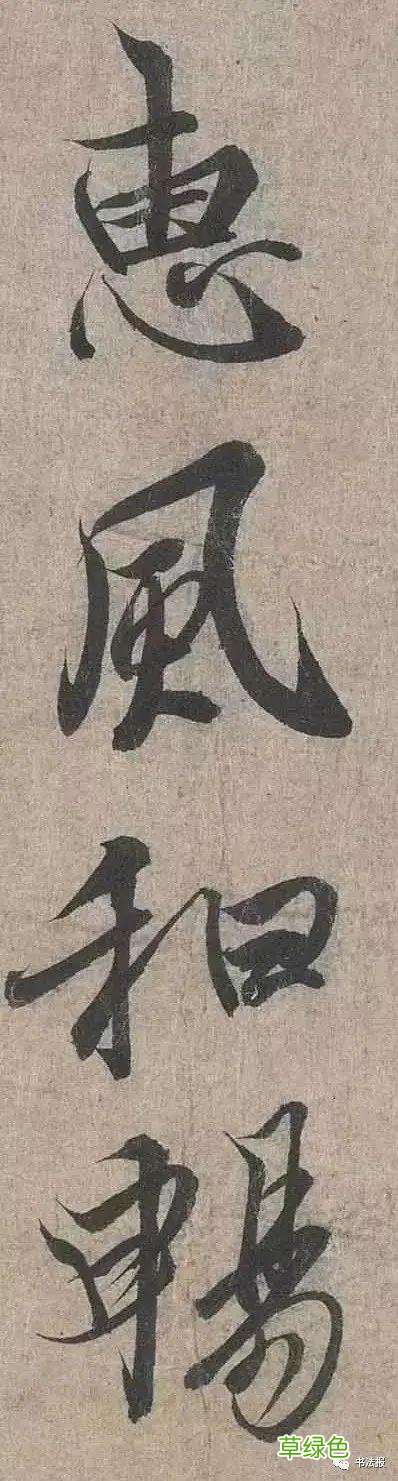 惠風和暢
草绿色
书法报